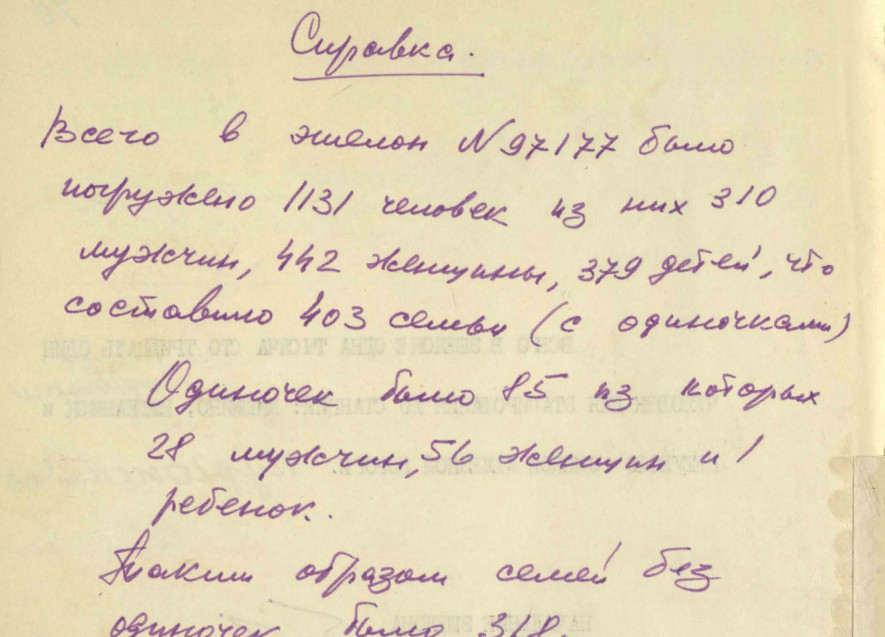 Справка.
Всего в эшелон N 97177 было
погружено 1131 человек из них 310
мужчин, 442 женщины, 379 детей, что
составило 403 семьи (с одиночками)
Одиночек было 85 из которых
28 мужчин, 56 женщин и 1
ребенок.
Таким образом семей без
одиночек было 318.